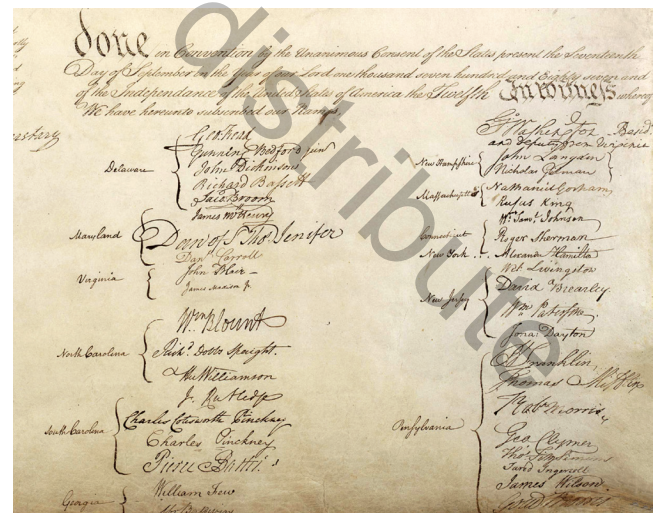 done in Convention by the Unanimous Consent of the States present the Seventeenth
Day of September in the Year of our Lord one thousand seven hundred and Eighty seven and
of the Independance of the United States of America the Twelfth In Witness whereof
We have hereunto subscribed our Names,
Delaware
Geo: Read
Gunning Bedford jun
John Dickinson
Richard Bassett
Jaco: Broom
Maryland
James McHenry
Dan of St Thos. Jenifer
Danl. Carroll
Virginia
John Blair—
James Madison Jr.
North Carolina
Wm Blount
Richd. Dobbs Spaight.
Hu Williamson
South Carolina
J. Rutledge
Charles Cotesworth Pinckney
Charles Pinckney
Pierce Butler
Georgia
William Few
Go: Washington Presidt.
and deputy from Virginia
New Hampshire
John Langdon
Nicholas Gilman
Massachusetts
Nathaniel Gorham
Rufus King
Connecticut
Wm. Saml. Johnson
Roger Sherman
New York
Alexander Hamilton
New Jersey
Wil: Livingston
David Brearley.
Wm. Paterson.
Jona: Dayton
Pensylvania
B Franklin
Thomas Mifflin
Robt Morris
Geo. Clymer
Thos. FitzSimons
Jared Ingersoll
James Wilson.
distribute